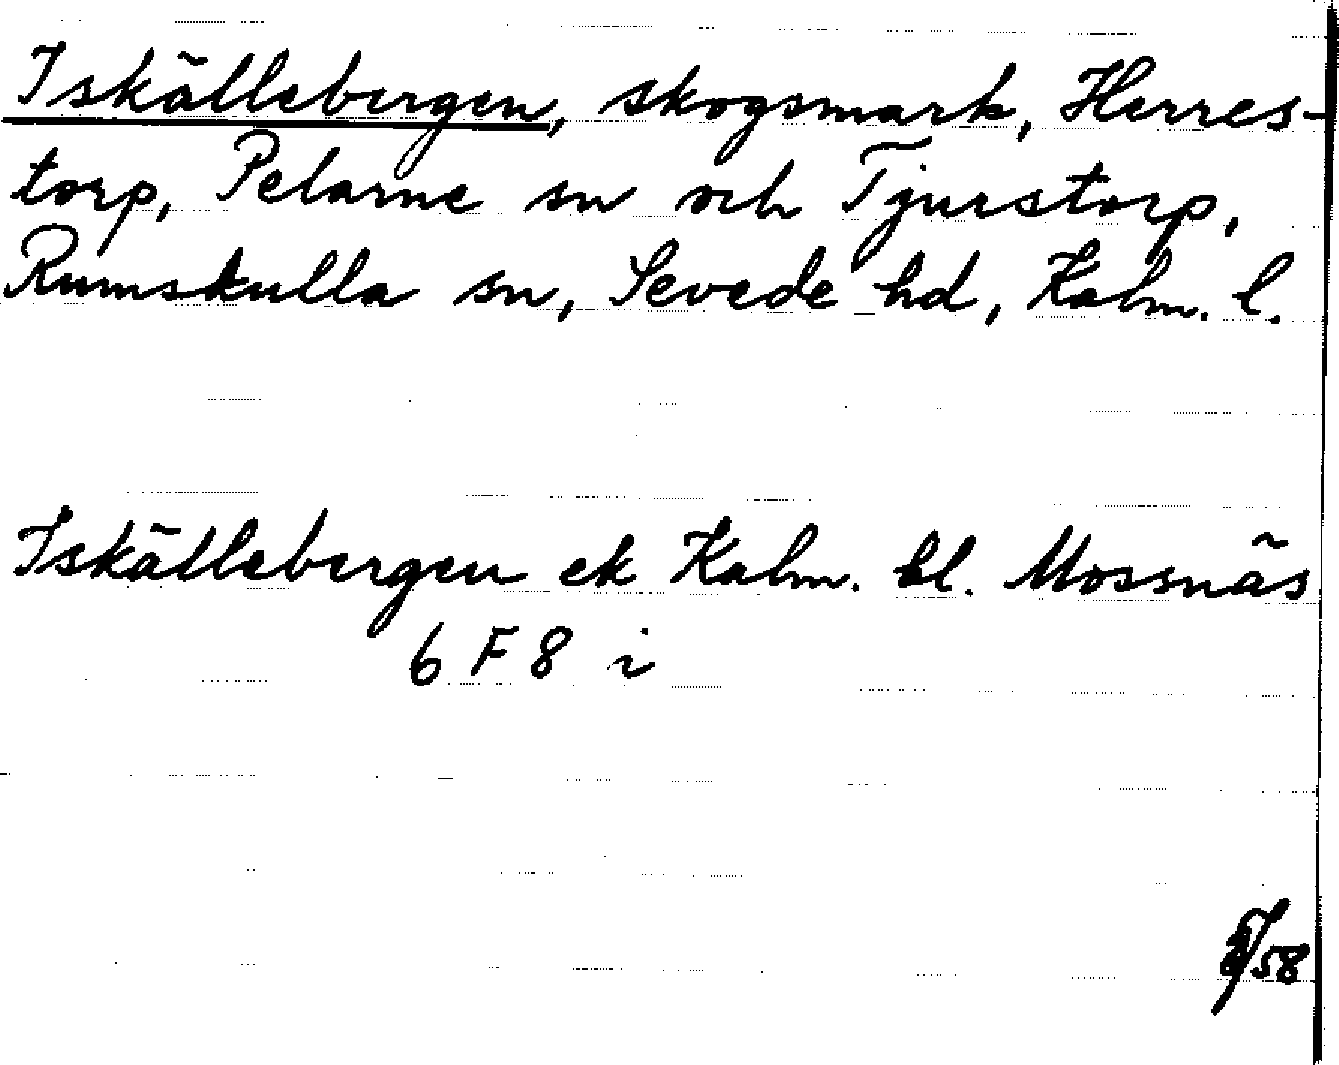 Iskällebergen, skogsmark, Herres-
torp, Pelarne sn och Tjurstorp,
Rumskulla sn, Sevede hd, Kalm. l.
Iskällebergen ek Kalm. bl. Mossnäs
6 F 8 i
/58